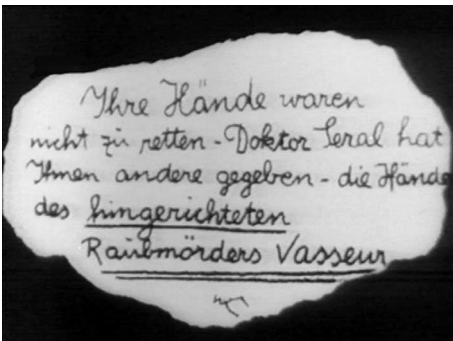 Ihre Hände waren
nicht zu retten - Doktor Seral hat
Ihnen andere gegeben - die Hände
des hingerichteten
Raubmörders Vasseur